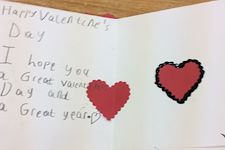 Happy Valentine's
Day
I hope you
a Great valentine
Day and
a Great year